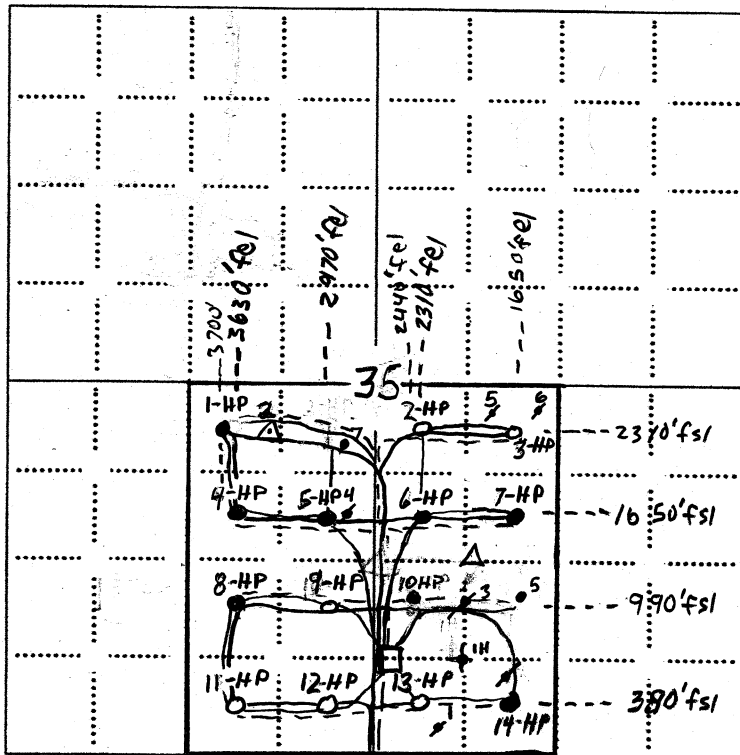 3700'
3630'fel
2970'fel
2440'fel
2310'fel
1650'fel
35
1-HP 2 2-HP 5 6
3-HP
4-HP 5-HP 4 6-HP 7-HP
1650'fsl
8-HP 9-HP 10HP 3 5
990'fsl
1H
11-HP 12-HP 13-HP
14-HP